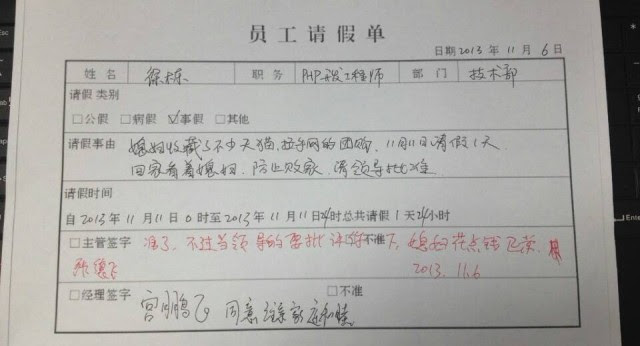 员工请假单
日期 2013 年 11 月 6 日
姓名 徐栋 职务 PHP开发工程师 部门 技术部
请假类别
□公假 □病假 ☑事假 □其他
请假事由 媳妇收藏了不少天猫,拉手网的团购,11月11日请假1天
回家看着媳妇,防止败家,请领导批准.
请假时间
自 2013 年 11 月 11 日 0 时至 2013 年 11 月 11 日 24 时总共请假 1 天 24 小时
□主管签字 准了,不过当领导的要批评 □不准 下,媳妇花点钱
2013.11.6
□经理签字 宫鹏飞 同意 注意家庭和睦 □不准